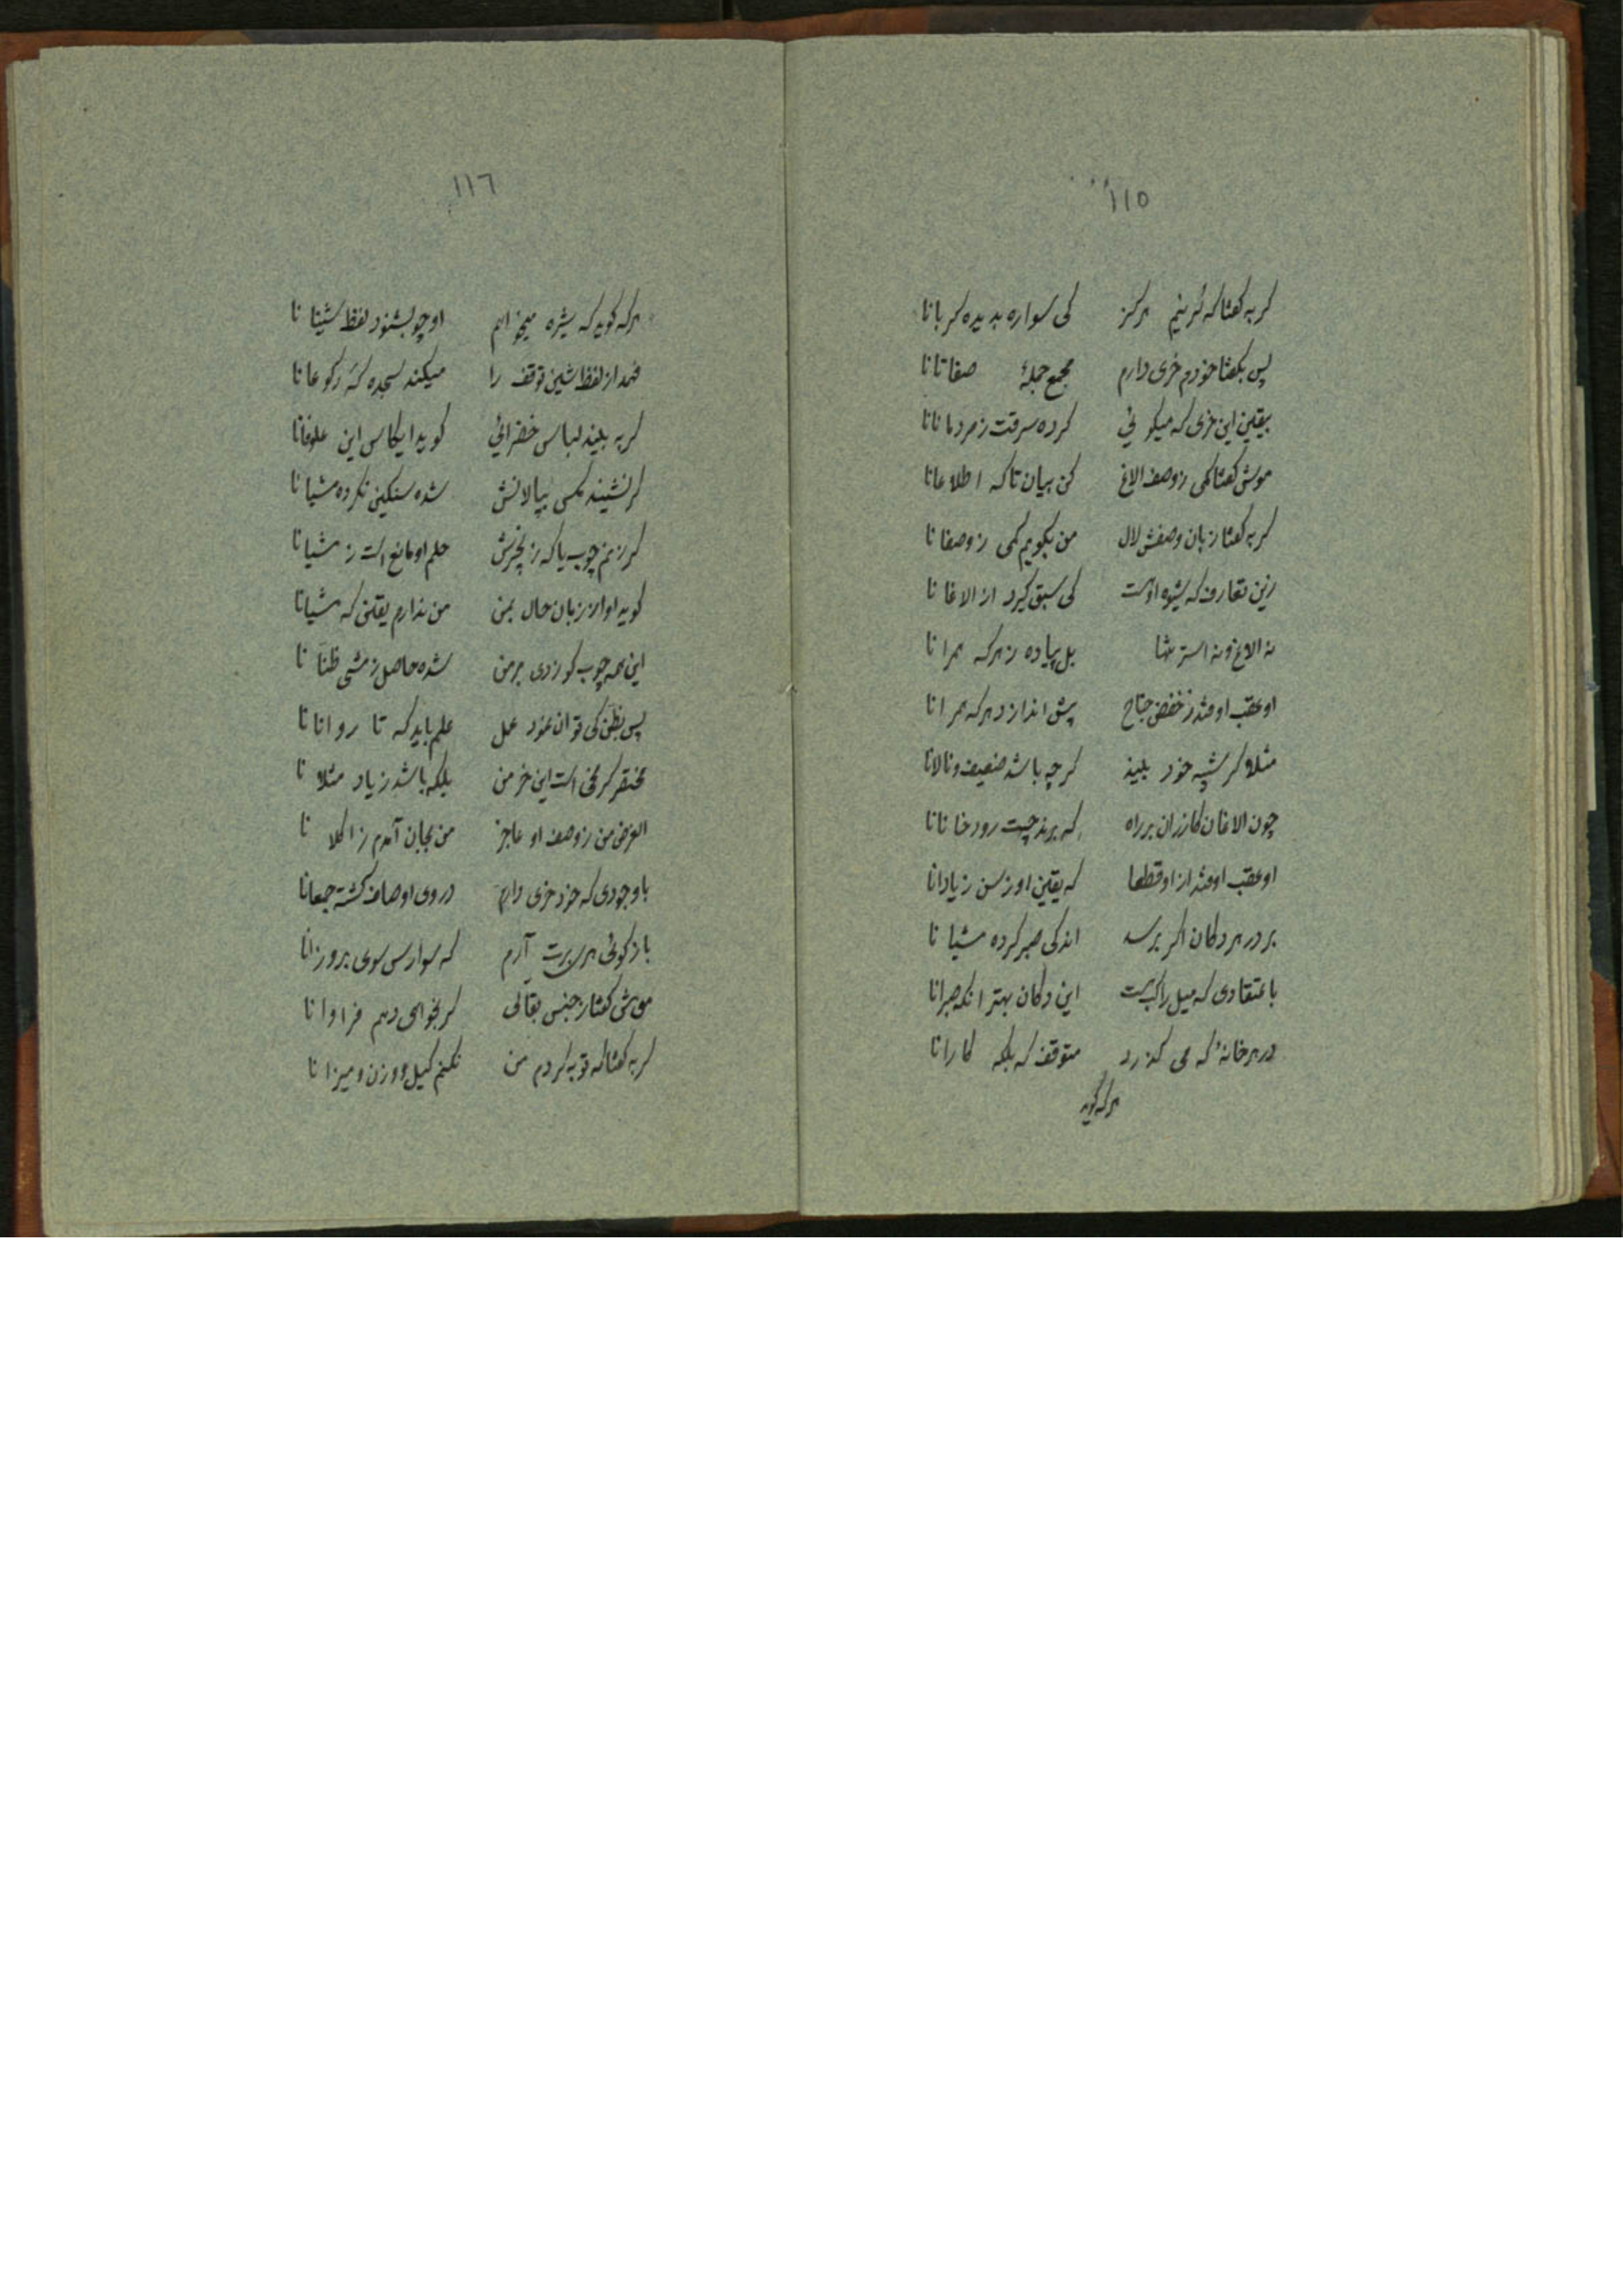 ۱۱۵
گربه گفتا که گر نیم هرگز کی سواره بدیده گربانا
پس بگفتا خودم خری دارم مجمع جملهٔ صفاتانا
بیقین این خری که میگوئی کرده سرقت ز مردمانانا
موش گفتا کمی ز وصف الاغ کن بیان تا که اطلاعانا
گربه گفتا زبان وصفش لال من بگویم کمی ز وصفانا
زین تعارف که شیوه اوست کی سبق گیرد از الاغانا
نه الاغ و نه استر تنها بل پیاده ز هرکه همرانا
او عقب اوفتد ز خفض جناح پیش اندازد هرکه همرانا
مثلا گر شپه خود بیند گرچه باشد ضعیف و نالانا
چون الاغان گازران بر راه که برند چیت رودخانانا
او عقب اوفتد از او قطعا که یقین او ز سن زیادانا
بر در هر دکان اگر برسد اندکی صبر کرده مشیانا
باعتقادی که میل راکب است این دکان بهتر انکه صبرانا
در هر خانهٔ که می گذرد متوقف که بلکه کارانا
هرکه گوید
۱۱٦
هرکه گوید که شیره میخواهم او چو بشنود لفظ شینانا
فهمد از لفظ شین توقف را میکند سجده گه رکوعانا
گر به بیند لباس خضرائی گوید ایکاس این علوفانا
گر نشیند مگسی بپالانش شده سنگین نکرده مشیانا
گر زنم چوب یا که زنجیرش حلم او مانع است ز مشیانا
گوید او از زبان حال بمن من ندارم یقینی که مشیانا
این همه چوب کو زدی بر من شده حاصل ز مشی ظنانا
پس بظن کی توان نمود عمل علم باید که تا روانانا
مختصر کرمخی است این خر من بلکه باشد زیاد مثلانا
الغرض من ز وصف او عاجز من بجان آمدم ز اکلانا
با وجودی که خود خری دارم در وی اوصاف گشته جمعانا
باز گوئی هر سرت آرم که سوارسی سوی بروزانا
موش گفتا ز جنس بقالی گر بخواهی دهم فراوانا
گربه گفتا که توبه کردم من نکنم کیل و وزن و میزانا